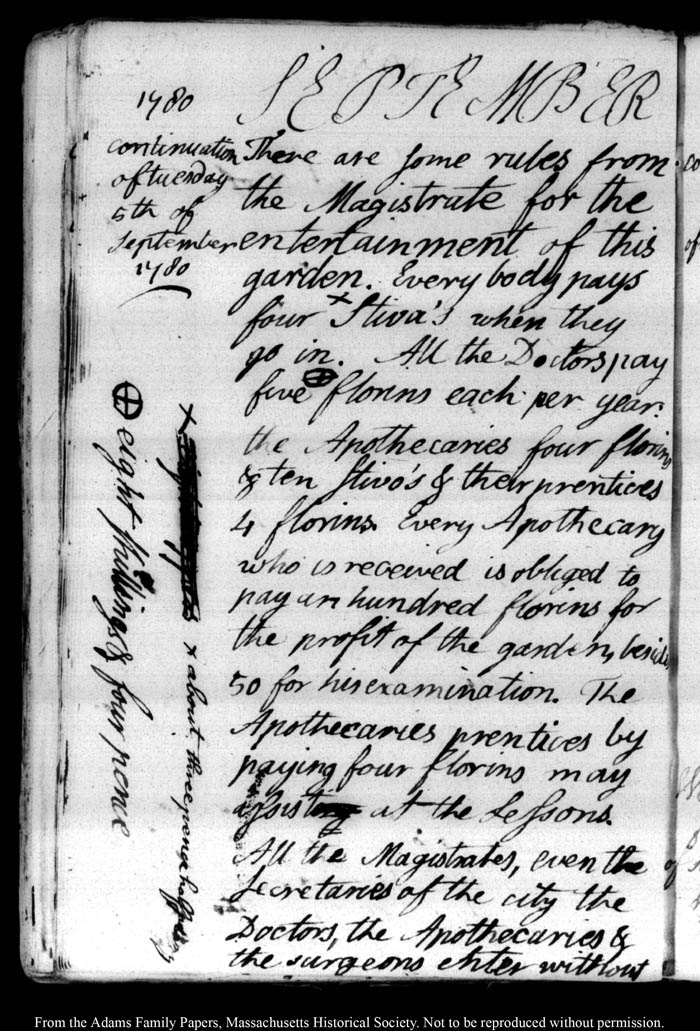 1780
SEPTEMBER
continuation
of tuesday
5th of
September
1780
There are some rules from
the Magistrate for the
entertainment of this
garden. Every body pays
four + Stiva's when they
go in. All the Doctors pay
five ⊕ florins each per year.
the Apothecaries four florins
& ten Stivo's & their prentices
4 florins. Every Apothecary
who is received is obliged to
pay an hundred florins for
the profit of the garden, besides
50 for his examination. The
Apothecaries prentices by
paying four florins may
assist at the Lessons.
All the Magistrates, even the
Secretaries of the city the
Doctors, the Apothecaries &
the surgeons enter without
⊕ eight shillings & four pence
+
x about three pence halfpenny
From the Adams Family Papers, Massachusetts Historical Society. Not to be reproduced without permission.